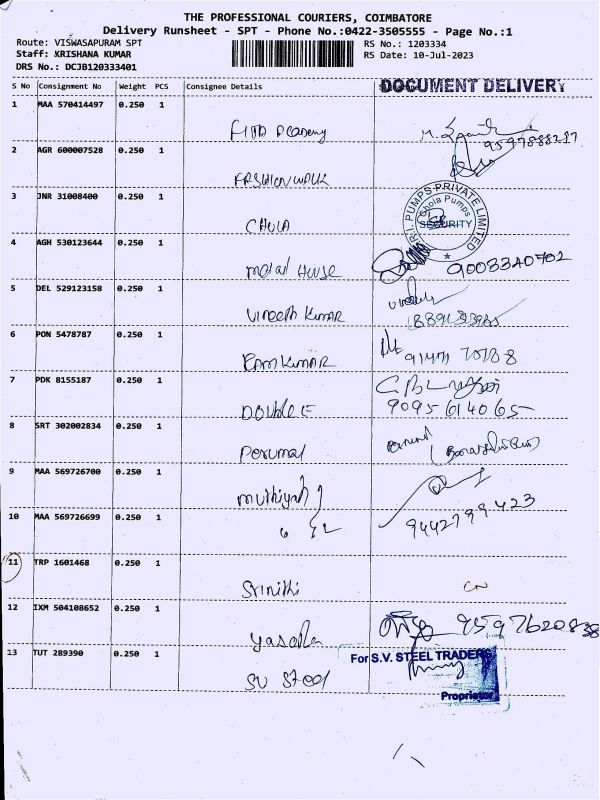 THE PROFESSIONAL COURIERS, COIMBATORE
Delivery Runsheet - SPT - Phone No.:0422-3505555 - Page No.:1
Route: VISWASAPURAM SPT
RS No.: 1203334
Staff: KRISHANA KUMAR
RS Date: 10-Jul-2023
DRS No.: DCJB120333401
S No Consignment No Weight PCS Consignee Details DOCUMENT DELIVERY
1 MAA 570414497 0.250 1
2 AGR 600007528 0.250 1
FASHION WALK
3 JNR 31008400 0.250 1
CHOLA
R.I. PUMPS PRIVATE LIMITED
Chola Pumps
SECURITY
4 AGH 530123644 0.250 1
metal House 9003340702
5 DEL 529123158 0.250 1
Vineeth Kumar
6 PON 5478787 0.250 1
Ramkumar
7 PDK 8155187 0.250 1
Double E 9095614065
8 SRT 302002834 0.250 1
Perumal
9 MAA 569726700 0.250 1
muthiyah
10 MAA 569726699 0.250 1
9442799423
11 TRP 1601468 0.250 1
Srinithi CN
12 IXM 504108652 0.250 1
9597620838
13 TUT 289390 0.250 1
SV Steel
For S.V. STEEL TRADERS
Proprietor